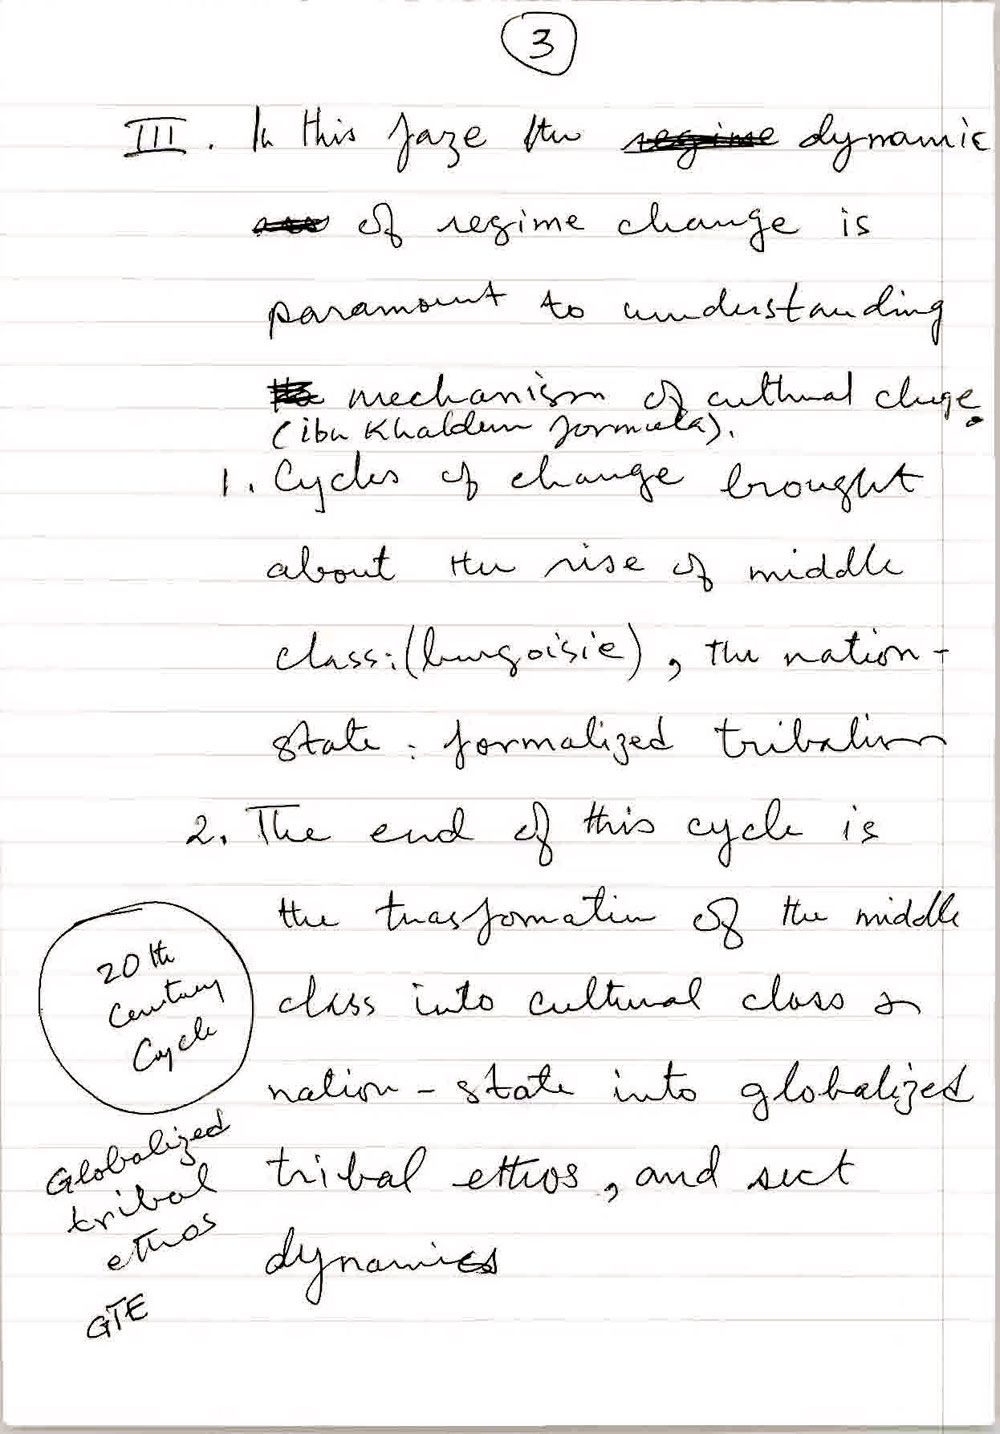 3
III. In this faze the regime dynamic
of regime change is
paramount to understanding
the mechanism of cultural chage.
(ibn Khaldun formula).
1. Cycles of change brought
about the rise of middle
class: (burgoisie), the nation-
state: formalized tribalism
2. The end of this cycle is
the trasformation of the middle
class into cultural class &
nation-state into globalized
tribal ethos, and sect
dynamics
20th
Century
Cycle
Globalized
tribal
ethos
GTE